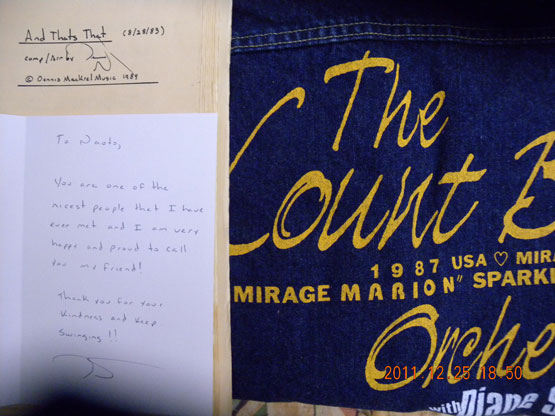 And Thats That (8/28/89)
comp/Arr by
© Dennis Mackrel Music 1989
To Naoto,
You are one of the
nicest people that I have
ever met and I am very
happy and proud to call
you my friend!
Thank you for your
kindness and keep
swinging!!
The
Count B
1987 USA ♡ MIRA
MIRAGE MARION" SPARKL
Orche
with Diane S
2011.12.25 18:50